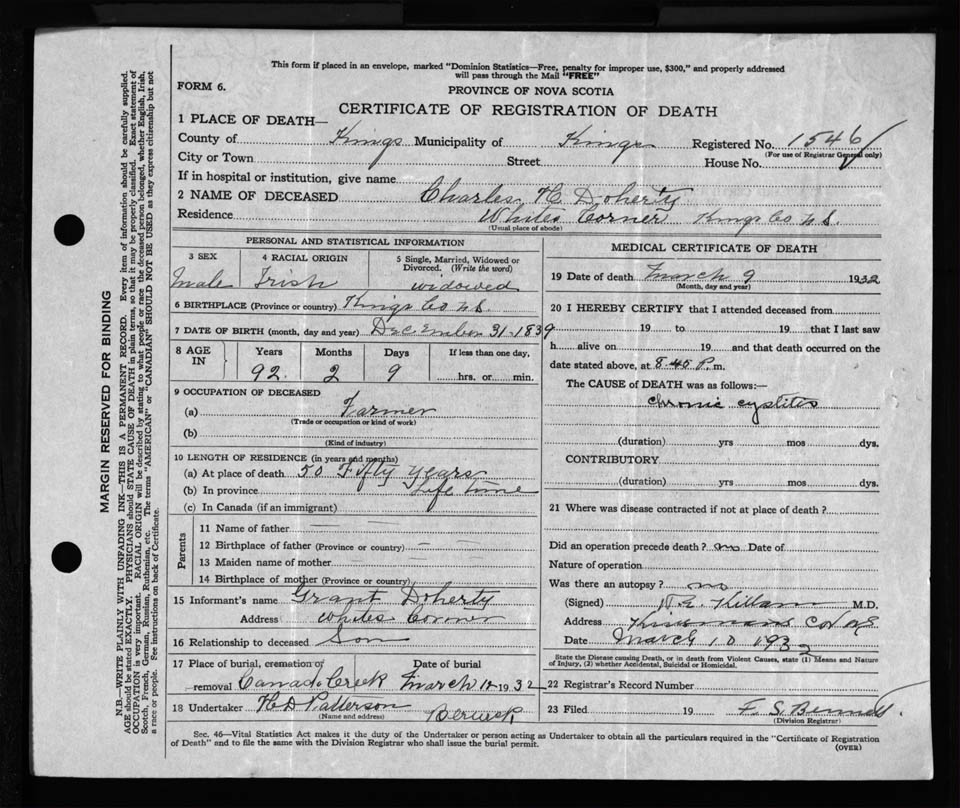 This form if placed in an envelope, marked "Dominion Statistics—Free, penalty for improper use, $300," and properly addressed
will pass through the Mail "FREE"
FORM 6.
PROVINCE OF NOVA SCOTIA
CERTIFICATE OF REGISTRATION OF DEATH
1 PLACE OF DEATH—
County of Kings Municipality of Kings Registered No. 1546
(For use of Registrar General only)
City or Town Street House No.
If in hospital or institution, give name
2 NAME OF DECEASED Charles H. C. Doherty
Residence Whites Corner Kings Co N.S.
(Usual place of abode)
PERSONAL AND STATISTICAL INFORMATION
3 SEX 4 RACIAL ORIGIN 5 Single, Married, Widowed or
Divorced. (Write the word)
Male Irish widowed
6 BIRTHPLACE (Province or country) Kings Co N.S.
7 DATE OF BIRTH (month, day and year) December 31-1839
8 AGE IN Years Months Days If less than one day,
92 2 9 hrs. or min.
9 OCCUPATION OF DECEASED
(a) Farmer
(Trade or occupation or kind of work)
(b)
(Kind of industry)
10 LENGTH OF RESIDENCE (in years and months)
(a) At place of death 50 Fifty years
(b) In province Life time
(c) In Canada (if an immigrant)
Parents
11 Name of father
12 Birthplace of father (Province or country)
13 Maiden name of mother
14 Birthplace of mother (Province or country)
15 Informant's name Grant Doherty
Address Whites Corner
16 Relationship to deceased Son
17 Place of burial, cremation or Date of burial
removal Canada Creek March 12 1932
18 Undertaker H D Patterson Berwick
(Name and address)
MEDICAL CERTIFICATE OF DEATH
19 Date of death March 9 1932
(Month, day and year)
20 I HEREBY CERTIFY that I attended deceased from
19 to 19 that I last saw
h alive on 19 and that death occurred on the
date stated above, at 8.45 P.m.
The CAUSE of DEATH was as follows:—
chronic cystitis
(duration) yrs mos dys.
CONTRIBUTORY
(duration) yrs mos dys.
21 Where was disease contracted if not at place of death?
Did an operation precede death? no Date of
Nature of operation
Was there an autopsy? no
(Signed) Killam M.D.
Address Kinsmans Cor N.S.
Date March 10 1932
State the Disease causing Death, or in death from Violent Causes, state (1) Means and Nature
of Injury, (2) whether Accidental, Suicidal or Homicidal.
22 Registrar's Record Number
23 Filed 19 F. S.
(Division Registrar)
Sec. 46—Vital Statistics Act makes it the duty of the Undertaker or person acting as Undertaker to obtain all the particulars required in the "Certificate of Registration
of Death" and to file the same with the Division Registrar who shall issue the burial permit.
(OVER)
MARGIN RESERVED FOR BINDING
N.B.—WRITE PLAINLY WITH UNFADING INK—THIS IS A PERMANENT RECORD. Every item of information should be carefully supplied.
AGE should be stated EXACTLY. PHYSICIANS should STATE CAUSE OF DEATH in plain terms, so that it may be properly classified. Exact statement of
OCCUPATION is very important. RACIAL ORIGIN will be described by stating to what people or race the deceased person belonged, whether English, Irish,
Scotch, French, German, Russian, Ruthenian, etc. The terms "AMERICAN" or "CANADIAN" SHOULD NOT BE USED as they express citizenship but not
a race or people. See instructions on back of Certificate.